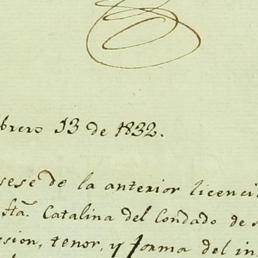 brero 13 de 1832.
sese de la anterior licenci
Sta. Catalina del Condado de
sion, tenor, y forma del in